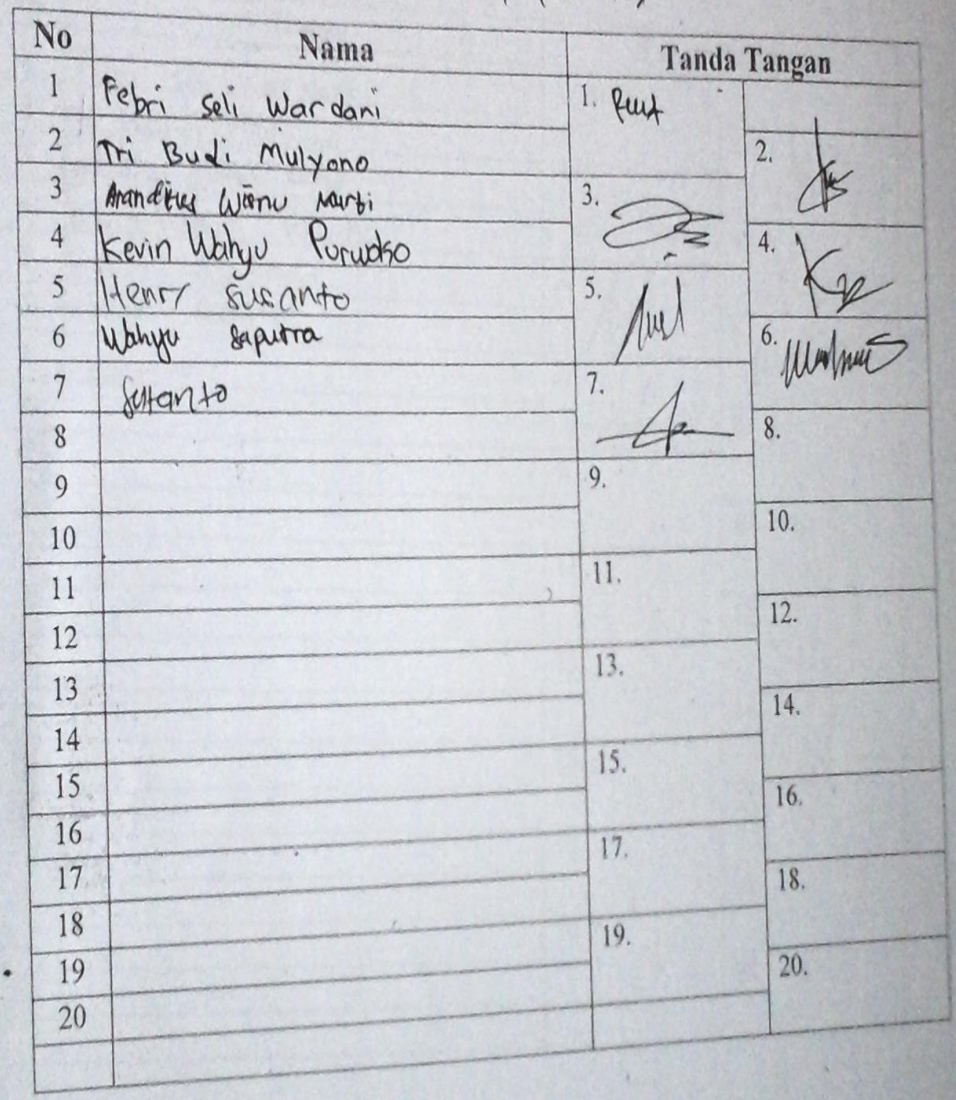 No Nama Tanda Tangan
1 Febri Seli Wardani 1.
2 Tri Budi Mulyono 2.
3 Wisnu 3.
4 Kevin Wahyu 4.
5 Henry Susanto 5.
6 Wahyu Saputra 6.
7 Sutanto 7.
8 8.
9 9.
10 10.
11 11.
12 12.
13 13.
14 14.
15 15.
16 16.
17 17.
18 18.
19 19.
20 20.